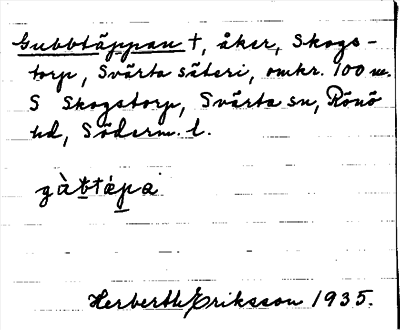 Gubbtäppan †, åker, Skogs-
torp, Svärta säteri, omkr. 100 m.
S Skogstorp, Svärta sn, Rönö
hd, Söderm. l.
gàbtápa
Herberth Eriksson 1935.